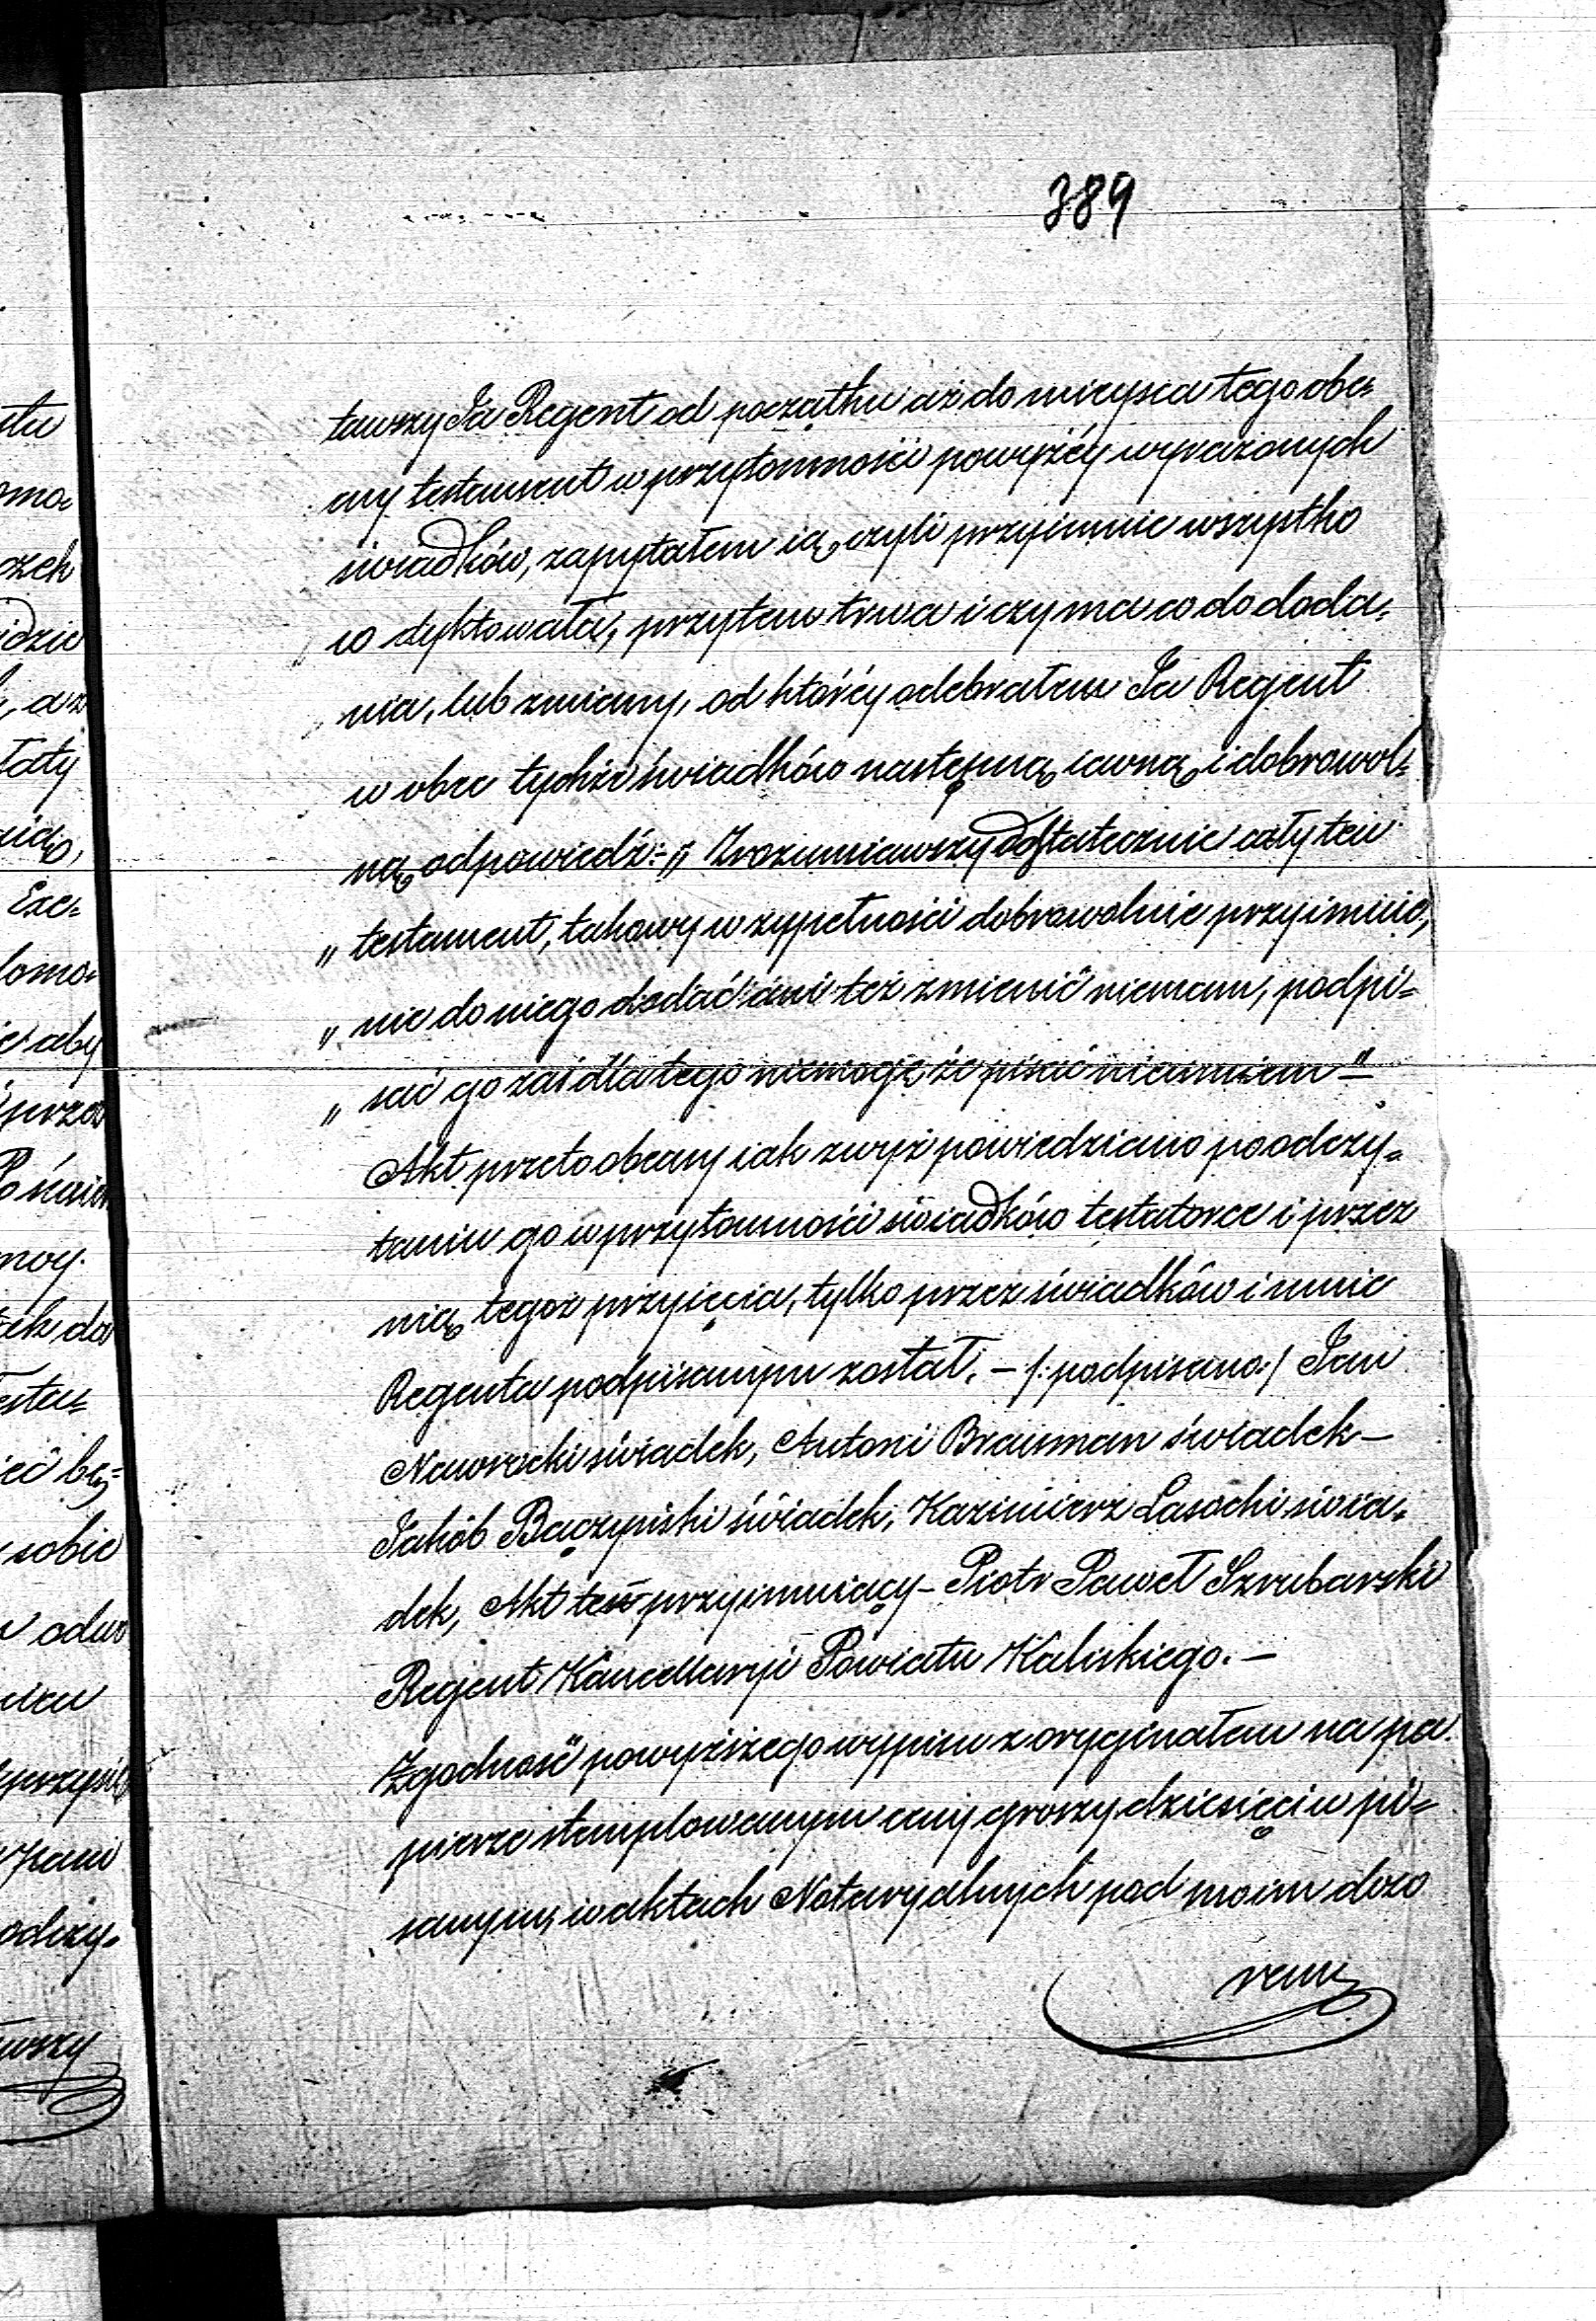 389
tawszy Ja Regent od początku aż do mieysca tego obe=
cny testament w przytomności powyżéy wyrażonych
świadków, zapytałem ią, czyli przyimuie wszystko
co dyktowała, przytem trwa i czy ma co do doda=
nia, lub zmiany, od któréy odebrałem Ja Regent
w obec tychże świadków następną iawną i dobrowol=
ną odpowiedź: „ Zrozumiawszy dostatecznie cały ten
„ testament, takowy w zupełności dobrowolnie przyimuię,
„ nic do niego dodać ani też zmienić niemam, podpi=
„ sać go zaś dla tego niemogę że pisać nieumiem "
Akt przeto obecny iak zwyż powiedziano po odczy=
taniu go w przytomności świadków testatorce i przez
nią tegoż przyięcia, tylko przez świadków i mnie
Regenta podpisanym został. – /: podpisano :/ Jan
Nawrocki świadek, Antoni Brauman świadek –
Jakób Bączyński świadek, Kazimierz Lasocki świa=
dek, Akt ten przyimuiący – Piotr Paweł Szrubarski
Regent Kancellaryi Powiatu Kaliskiego. –
Zgodność powyższego wypisu z oryginałem na pa
pierze stemplowanym ceny groszy dziesięciu pi=
sanym, w aktach Notaryalnych pod moim dozo
rem
stu
oma
czek
idzie
aty
Exe=
loma
aby
moy.
ek do
estu=
eć bę=
sobie
odczy=
wszy